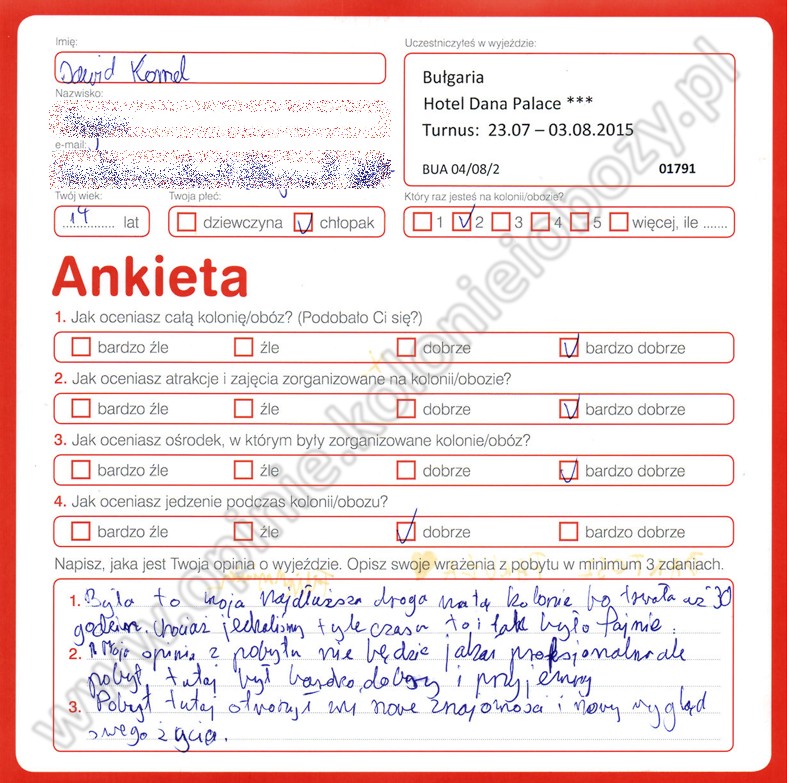 Imię:
Dawid Kornel
Nazwisko:
e-mail:
Twój wiek:
14 lat
Twoja płeć:
dziewczyna chłopak
Uczestniczyłeś w wyjeździe:
Bułgaria
Hotel Dana Palace ***
Turnus: 23.07 – 03.08.2015
BUA 04/08/2 01791
Który raz jesteś na kolonii/obozie?
1 2 3 4 5 więcej, ile .......
Ankieta
1. Jak oceniasz całą kolonię/obóz? (Podobało Ci się?)
bardzo źle źle dobrze bardzo dobrze
2. Jak oceniasz atrakcje i zajęcia zorganizowane na kolonii/obozie?
bardzo źle źle dobrze bardzo dobrze
3. Jak oceniasz ośrodek, w którym były zorganizowane kolonie/obóz?
bardzo źle źle dobrze bardzo dobrze
4. Jak oceniasz jedzenie podczas kolonii/obozu?
bardzo źle źle dobrze bardzo dobrze
Napisz, jaka jest Twoja opinia o wyjeździe. Opisz swoje wrażenia z pobytu w minimum 3 zdaniach.
1. Była to moja najdłuższa droga na tą kolonie bo trwała aż 30
godzin. chociaż jechaliśmy tyle czasu to i tak było fajnie.
2. Moja opinia z pobytu nie będzie jakaś profesjonalna ale
pobyt tutaj był bardzo dobry i przyjemny
3. Pobyt tutaj otworzył mi nowe znajomości i nowy wygląd
swego życia.
www.opinie.kolonieiobozy.pl